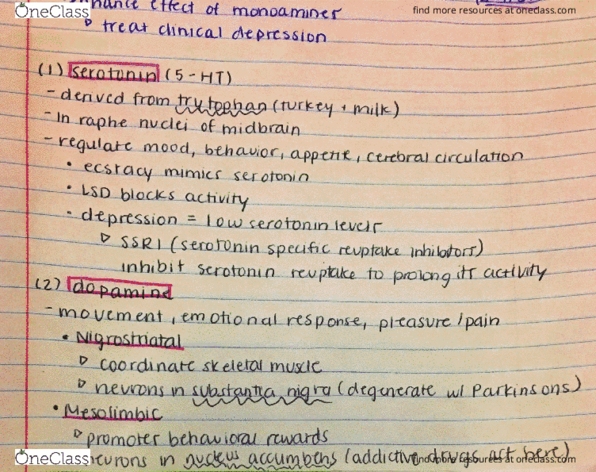 OneClass
find more resources at oneclass.com
hance effect of monoamines
▷ treat clinical depression
(1) serotonin (5-HT)
- derived from trytophan (turkey + milk)
- In raphe nuclei of midbrain
- regulate mood, behavior, appetite, cerebral circulation
• ecstacy mimics serotonin
• LSD blocks activity
• depression = low serotonin levels
▷ SSRI (serotonin specific reuptake inhibitors)
inhibit serotonin reuptake to prolong its activity
(2) dopamine
- movement, emotional response, pleasure/pain
• Nigrostriatal
▷ coordinate skeletal muscle
▷ neurons in substantia nigra (degenerate w/ Parkinsons)
• Mesolimbic
▷ promotes behavioral rewards
OneClass
neurons in nucleus accumbens (addictive drugs act here)
find more resources at oneclass.com